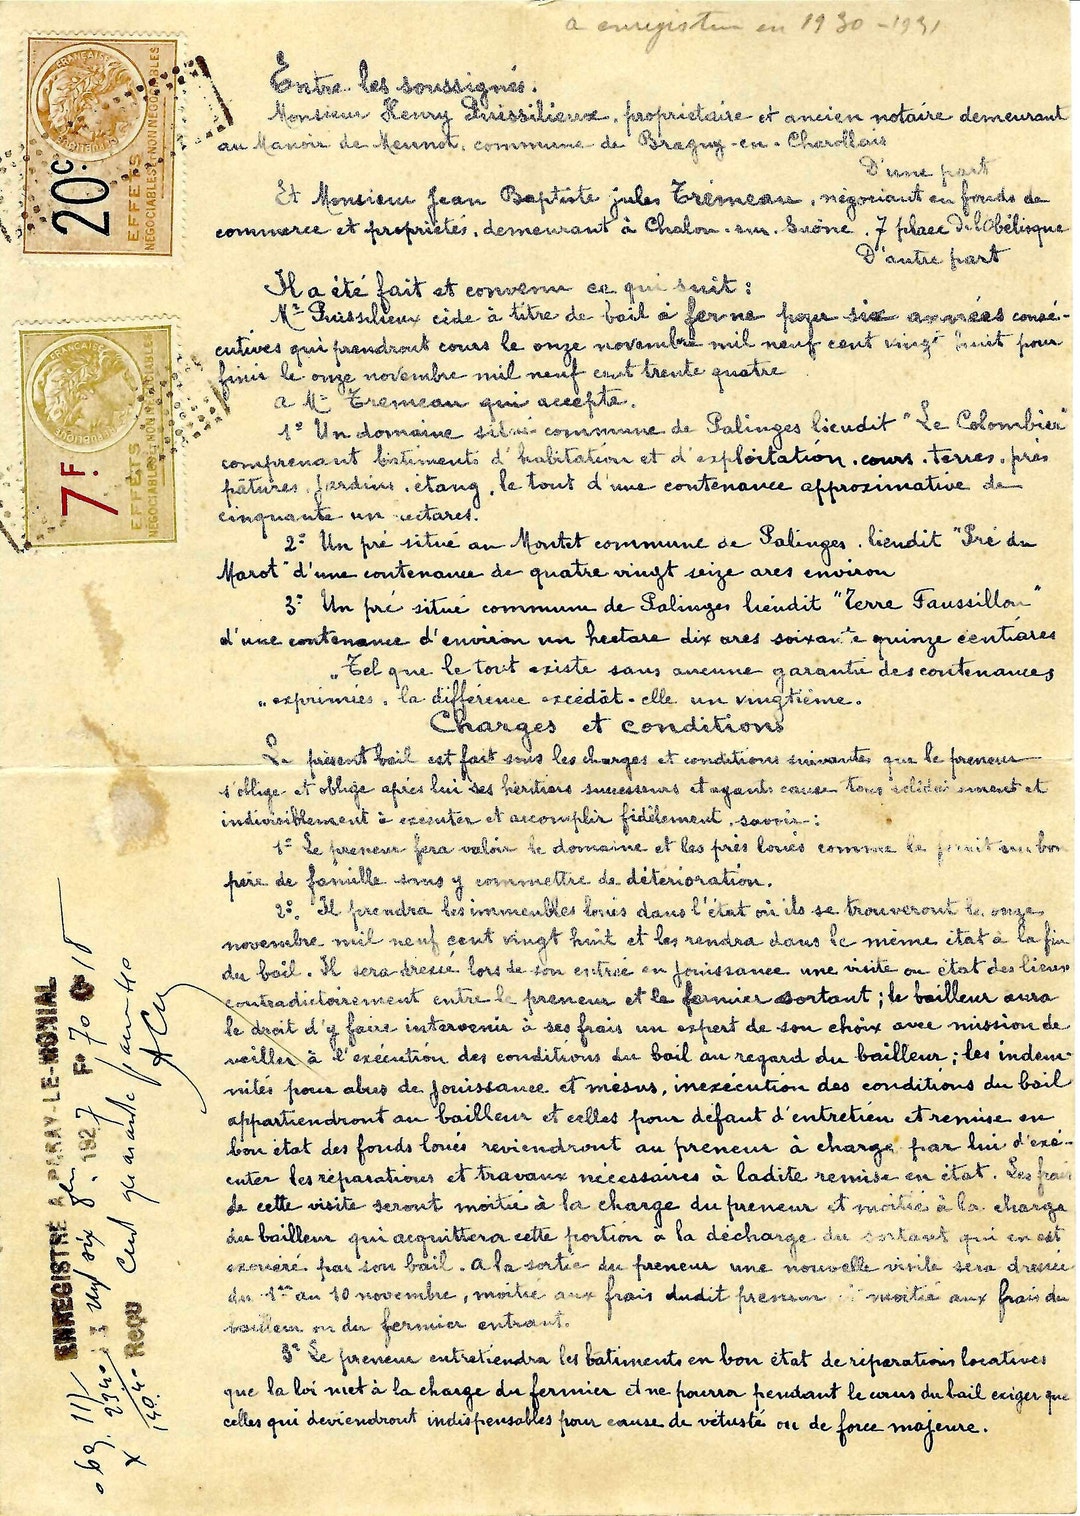 a enregistrer en 1930-1931
20c.
EFFETS
NÉGOCIABLES & NON NÉGOCIABLES
7F.
EFFETS
NÉGOCIABLES & NON NÉGOCIABLES
Entre les soussignés.
Monsieur Henry Puissilieux, propriétaire et ancien notaire demeurant
au Manoir de commune de Bragny-en-Charollais
D'une part
Et Monsieur Jean Baptiste jules Trémeau, négociant en fonds de
commerce et propriétés, demeurant à Chalon-sur-Saône, 7 place de l'Obélisque
D'autre part
Il a été fait et convenu ce qui suit :
Mr Puissilieux cède à titre de bail à ferme pour six années consé-
cutives qui prendront cours le onze novembre mil neuf cent vingt huit pour
finir le onze novembre mil neuf cent trente quatre
a Mr Trémeau qui accepte.
1º Un domaine situé commune de Palinges lieudit "Le Colombier"
comprenant bâtiments d'habitation et d'exploitation, cours, terres, prés
pâtures, jardins, étang, le tout d'une contenance approximative de
cinquante un ectares.
2º Un pré situé au Montet commune de Palinges, lieudit "Pré du
Marot" d'une contenance de quatre vingt seize ares environ
3º Un pré situé commune de Palinges lieudit "Terre Faussillon"
d'une contenance d'environ un hectare dix ares soixante quinze centiares
"Tel que le tout existe sans aucune garantie des contenances
"exprimées, la différence excédât-elle un vingtième.
Charges et conditions
Le présent bail est fait sous les charges et conditions suivantes que le preneur
s'oblige et oblige après lui ses héritiers successeurs et ayants cause tous solidairement et
indivisiblement à exécuter et accomplir fidèlement, savoir :
1º Le preneur fera valoir le domaine et les prés loués comme le ferait un bon
père de famille sans y commettre de détérioration.
2º. Il prendra les immeubles loués dans l'état où ils se trouveront le onze
novembre mil neuf cent vingt huit et les rendra dans le même état à la fin
du bail. Il sera dressé lors de son entrée en jouissance une visite ou état des lieux
contradictoirement entre le preneur et le fermier sortant ; le bailleur aura
le droit d'y faire intervenir à ses frais un expert de son choix avec mission de
veiller à l'exécution des conditions du bail au regard du bailleur ; les indem-
nités pour abus de jouissance et mésus, inexécution des conditions du bail
appartiendront au bailleur et celles pour défaut d'entretien et remise en
bon état des fonds loués reviendront au preneur à charge par lui d'exé-
cuter les réparations et travaux nécessaires à ladite remise en état. Les frais
de cette visite seront moitié à la charge du preneur et moitié à la charge
du bailleur qui acquittera cette portion à la décharge du sortant qui en est
exonéré par son bail. A la sortie du preneur une nouvelle visite sera dressée
du 1er au 10 novembre, moitié aux frais dudit preneur et moitié aux frais du
bailleur ou du fermier entrant.
3º Le preneur entretiendra les bâtiments en bon état de réparations locatives
que la loi met à la charge du fermier et ne pourra pendant le cours du bail exiger que
celles qui deviendront indispensables pour cause de vétusté ou de force majeure.
ENREGISTRÉ A PARAY-LE-MONIAL
1927 Fº 70 Cº 18
Reçu Cent quarante francs 40